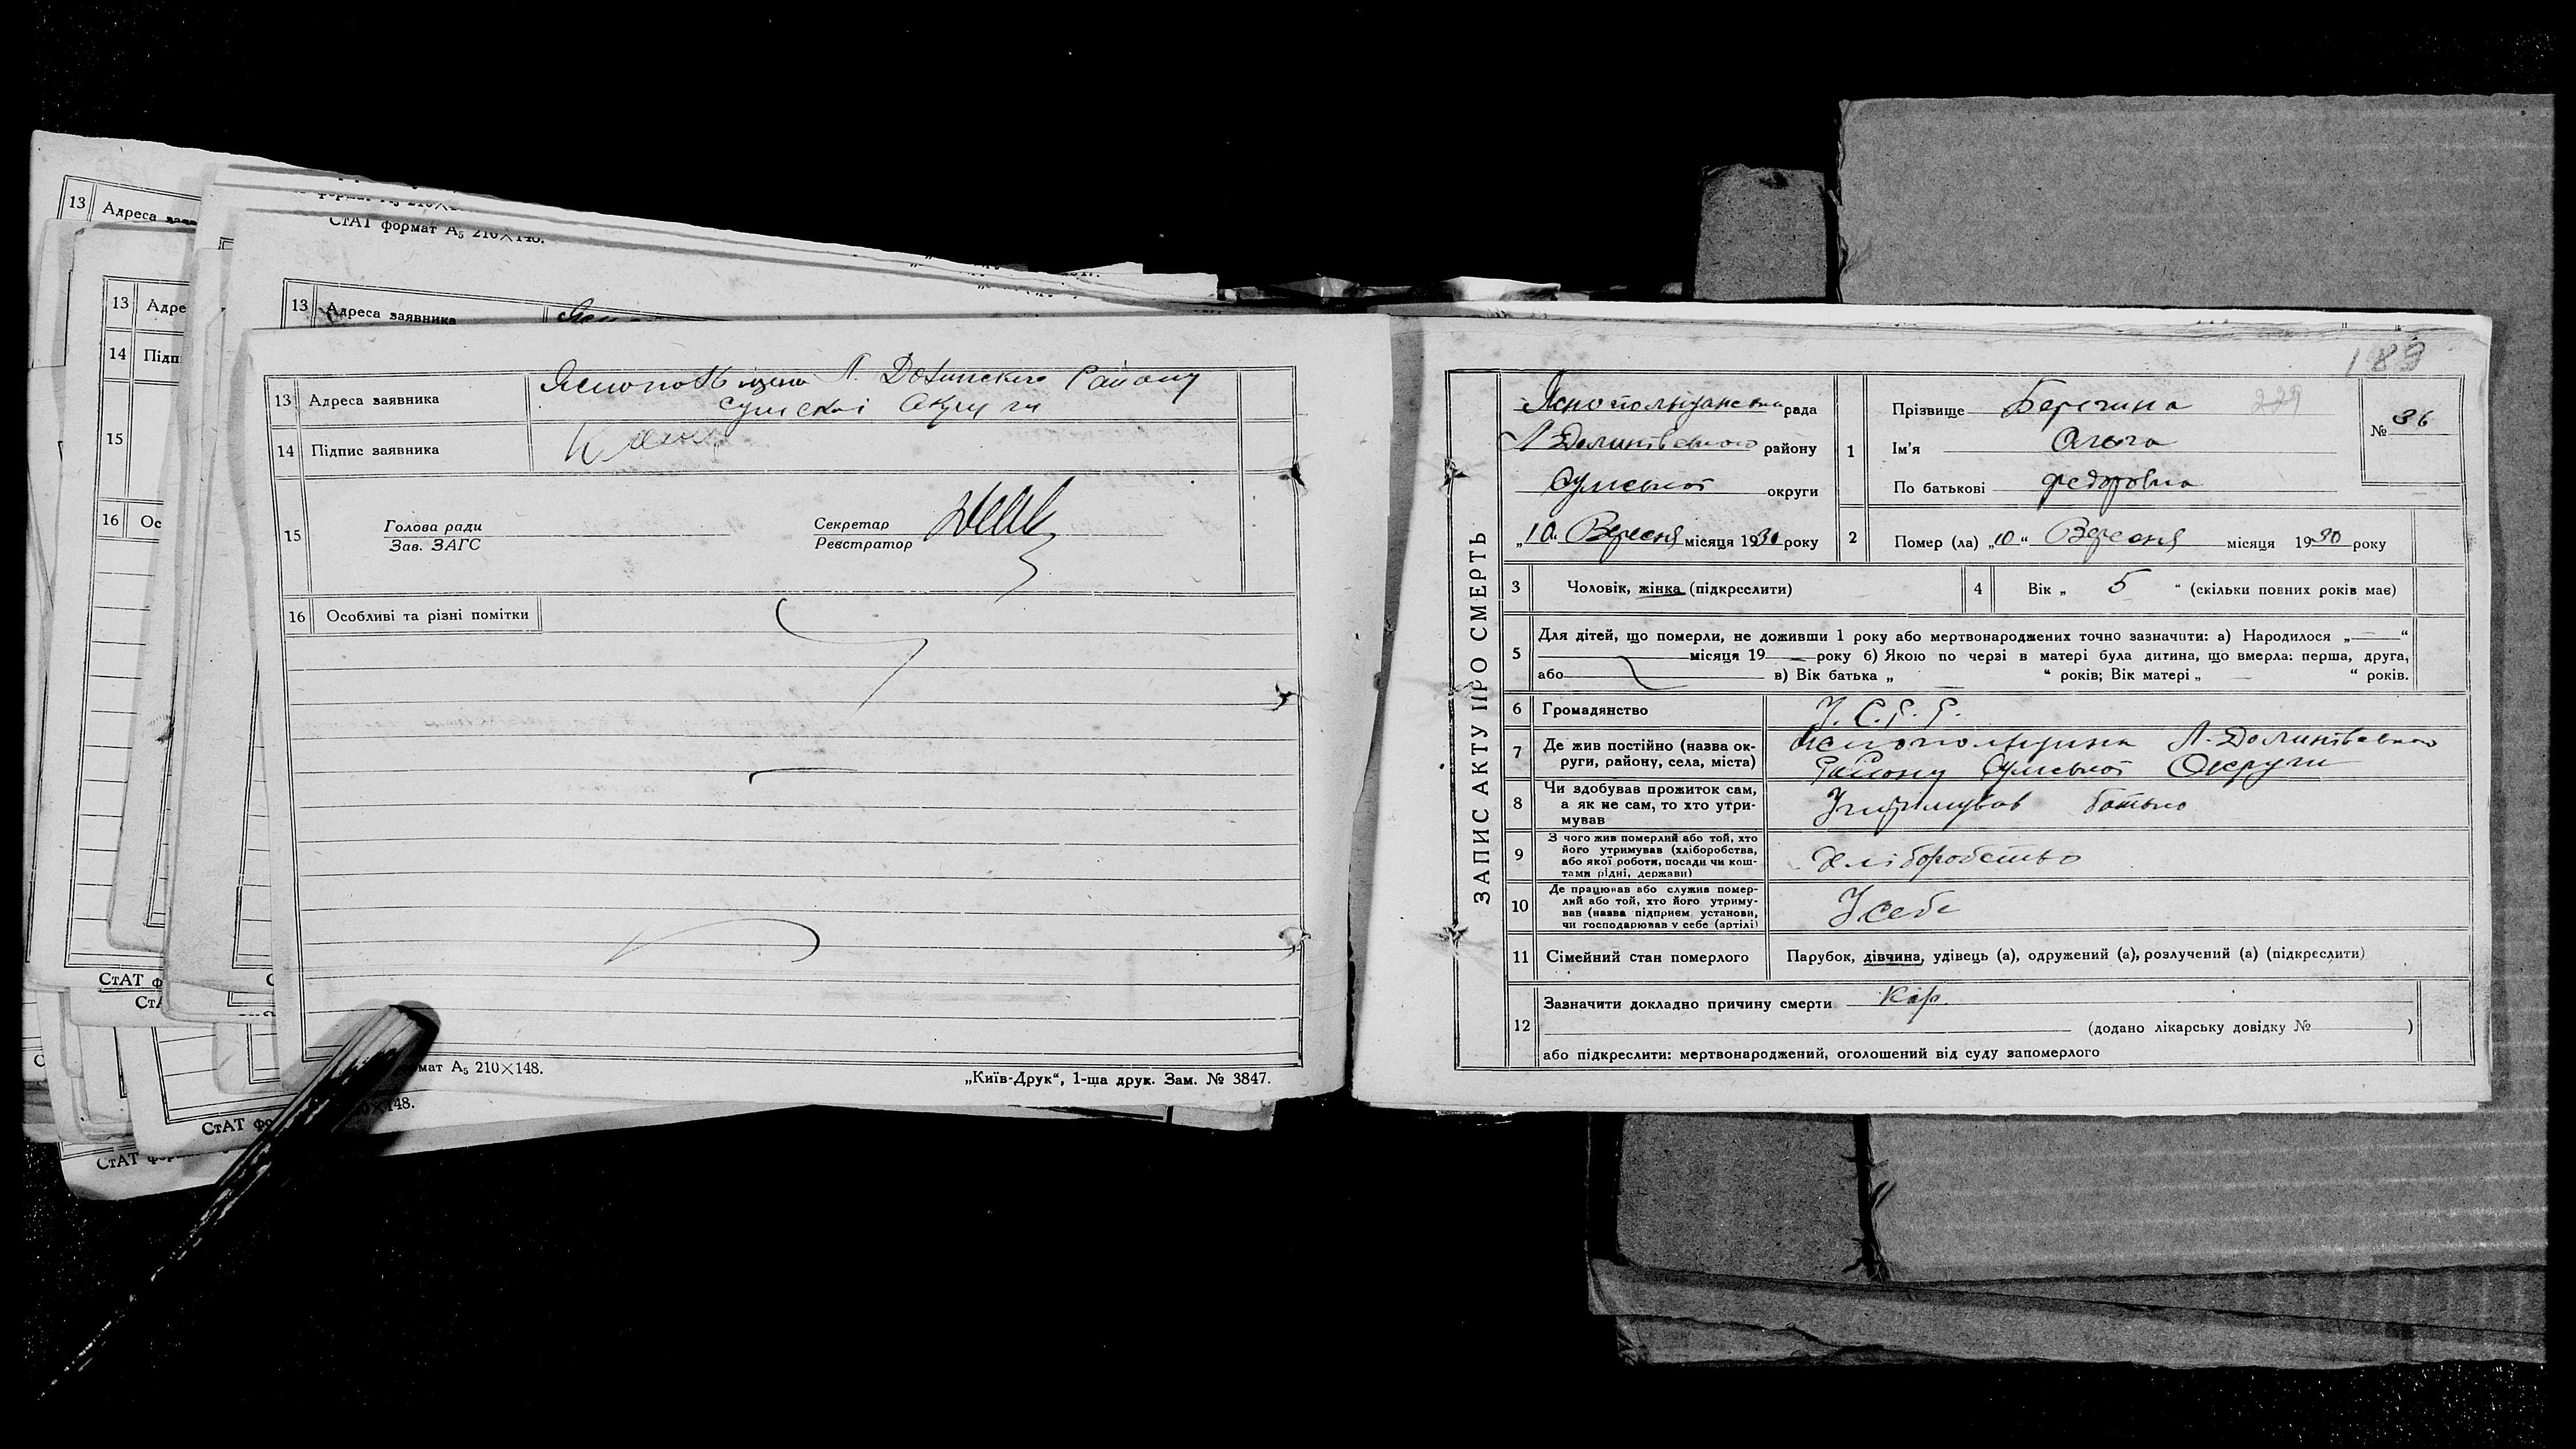 13 Адреса заяв
СтАТ формат А₅ 210×148.
13 Адре
14 Підп
15
16 Ос
13 Адреса заявника
13 Адреса заявника Яснопольщена Л. Долинського Району
сумскоі Округи
14 Підпис заявника
15 Голова ради
Зав. ЗАГС
Секретар
Реєстратор
16 Особливі та різні помітки
СтАТ ф
мат А₅ 210×148.
„Київ-Друк“, 1-ша друк. Зам. № 3847.
×148.
СтАТ фо
СтАТ фор
189
ЗАПИС АКТУ ПРО СМЕРТЬ
Яснопольщанська рада
Л Долинського району
Сумської округи
„10“ Вересня місяця 1930 року
1 Прізвище Березина 229
Ім'я Ольга
По батькові Федоровна
№ 36
2 Помер (ла) „10“ Вересня місяця 1930 року
3 Чоловік, жінка (підкреслити)
4 Вік „ 5 “ (скільки повних років має)
5 Для дітей, що померли, не доживши 1 року або мертвонароджених точно зазначити: а) Народилося „ “
місяця 19 року б) Якою по черзі в матері була дитина, що вмерла: перша, друга,
або в) Вік батька „ “ років; Вік матері „ “ років.
6 Громадянство У.С.Р.Р.
7 Де жив постійно (назва ок-
руги, району, села, міста)
Яснопольщина Л-Долинського
Району Сумської Округи
8 Чи здобував прожиток сам,
а як не сам, то хто утри-
мував
Утримував батько
9 З чого жив померлий або той, хто
його утримував (хліборобства,
або якої роботи, посади чи кош-
тами рідні, держави)
Хліборобство
10 Де працював або служив помер-
лий або той, хто його утриму-
вав (назва підприєм. установи,
чи господарював у себе (артілі)
У себе
11 Сімейний стан померлого
Парубок, дівчина, удівець (а), одружений (а), розлучений (а) (підкреслити)
12 Зазначити докладно причину смерти Кар.
(додано лікарську довідку № )
або підкреслити: мертвонароджений, оголошений від суду запомерлого